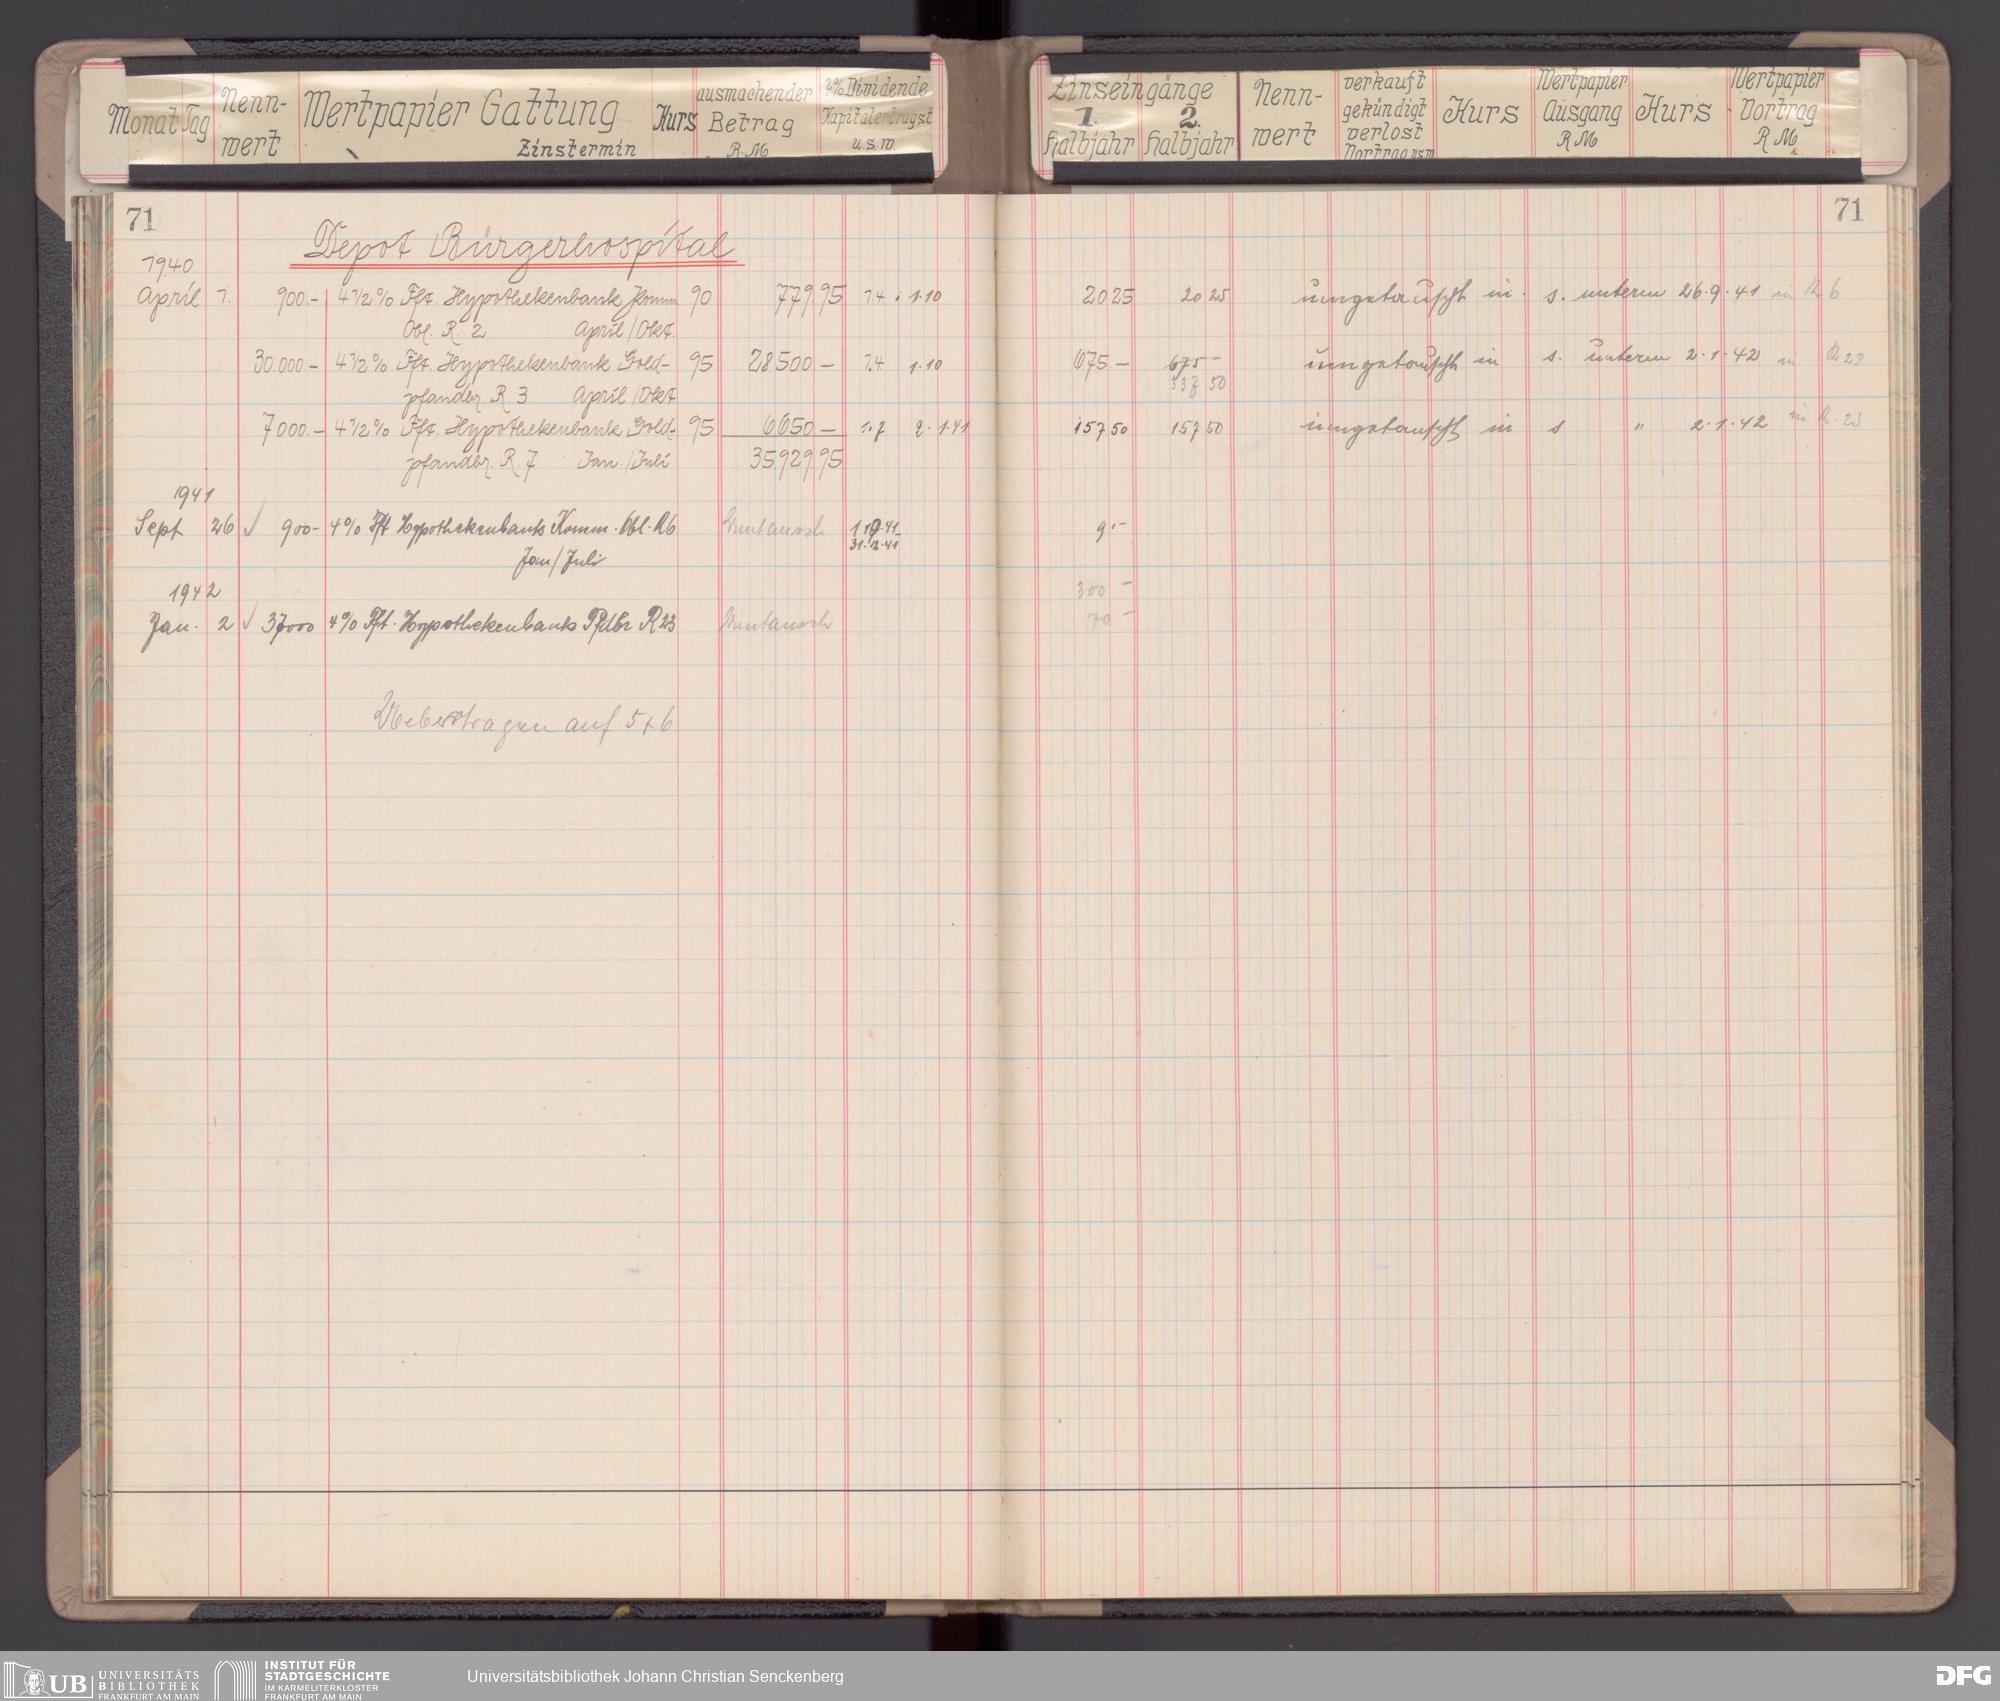 Monat Tag Nenn- wert Wertpapier Gattung Zinstermin Kurs ausmachender Betrag RM % Dividende Kapitalertragst u.s.w.
Zinseingänge 1. Halbjahr 2. Halbjahr Nenn- wert verkauft gekündigt verlost Vortrag usw Kurs Wertpapier Ausgang RM Kurs Wertpapier Vortrag RM
71 71
Depot Bürgerhospital
1940
April 1. 900.- 4½% Fft. Hypothekenbank Komm 90 779.95 1.4. 1.10 20 25 20 25 umgetauscht in s. unterm 26.9.41 in R 6
Obl. R. 2 April/Okt.
30.000.- 4½% Fft. Hypothekenbank Gold- 95 28.500 - 1.4 1.10 675 - 675 - umgetauscht in s. unterm 2.1.42 in R 23
pfandbr. R. 3 April/Okt 337 50
7000.- 4½% Fft. Hypothekenbank Gold- 95 6650 - 1.7 2.1.41 157 50 157 50 umgetauscht in s " 2.1.42 in R. 23
pfandbr. R. 7 Jan./Juli 35,929.95
1941
Sept 26 900- 4% Fft Hypothekenbank Komm. Obl. R6 Umtausch 1.10.41 9.-
31.12.41
Jan/Juli
1942 300 -
Jan. 2 37000 4% Fft. Hypothekenbank Pfdbr R23 Umtausch 70 -
Uebertragen auf 5+6
UB UNIVERSITÄTS
BIBLIOTHEK
FRANKFURT AM MAIN
INSTITUT FÜR
STADTGESCHICHTE
IM KARMELITERKLOSTER
FRANKFURT AM MAIN
Universitätsbibliothek Johann Christian Senckenberg
DFG